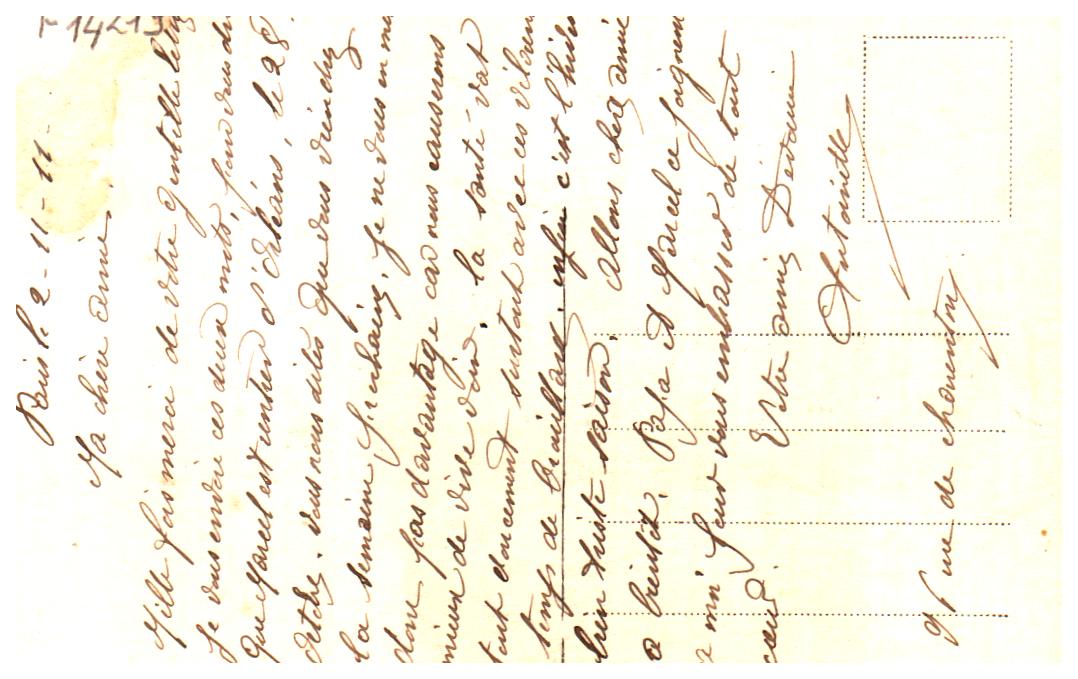 Paris le 2-11-11-
Ma chère amie.
Mille fois merci de votre gentille
Je vous envoie ces deux mots, pour vous
que Marcel est rentré d'Orléans, le 28
vous nous dites que vous viendrez
la semaine prochaine, je ne vous en
donc pas davantage car nous causerons
mieux de vive voix. la santé vat
tout doucement surtout avec ces
temps de brouillard, enfin c'est l'hiver
bien triste saison. Allons chère amie
à bientôt. Papa et Marcel ce joignent
a moi pour vous embrasser de tout
coeur.
Votre amie Dévouée
Antoinette
9 rue de charenton
14213